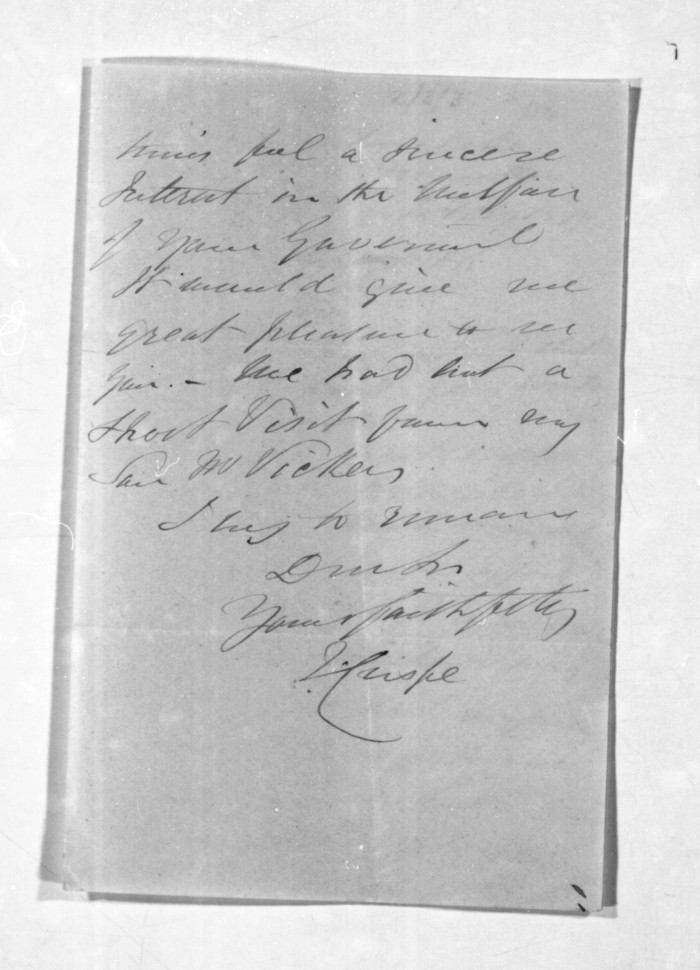 times feel a sincere
Interest in the Welfare
of your Goverment
It would give me
great pleasure to see
you. - We had but a
short Visit from my
Son Mr Vickers
I beg to remain
Dear Sir
Yours faithfully
Crispe